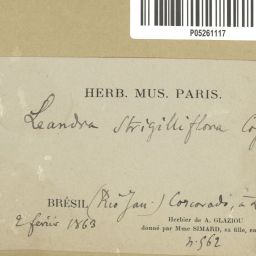 P05261117
HERB. MUS. PARIS.
Leandra strigilliflora Co
BRÉSIL (Rio Jan.) Corcovado, à
2 février 1863
Herbier de A. GLAZIOU
donné par Mme SIMARD, sa fille, en
n. 562